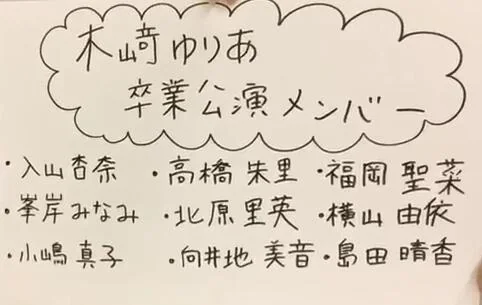 木﨑ゆりあ
卒業公演メンバー
・入山杏奈 ・高橋朱里 ・福岡聖菜
・峯岸みなみ ・北原里英 ・横山由依
・小嶋真子 ・向井地美音 ・島田晴香